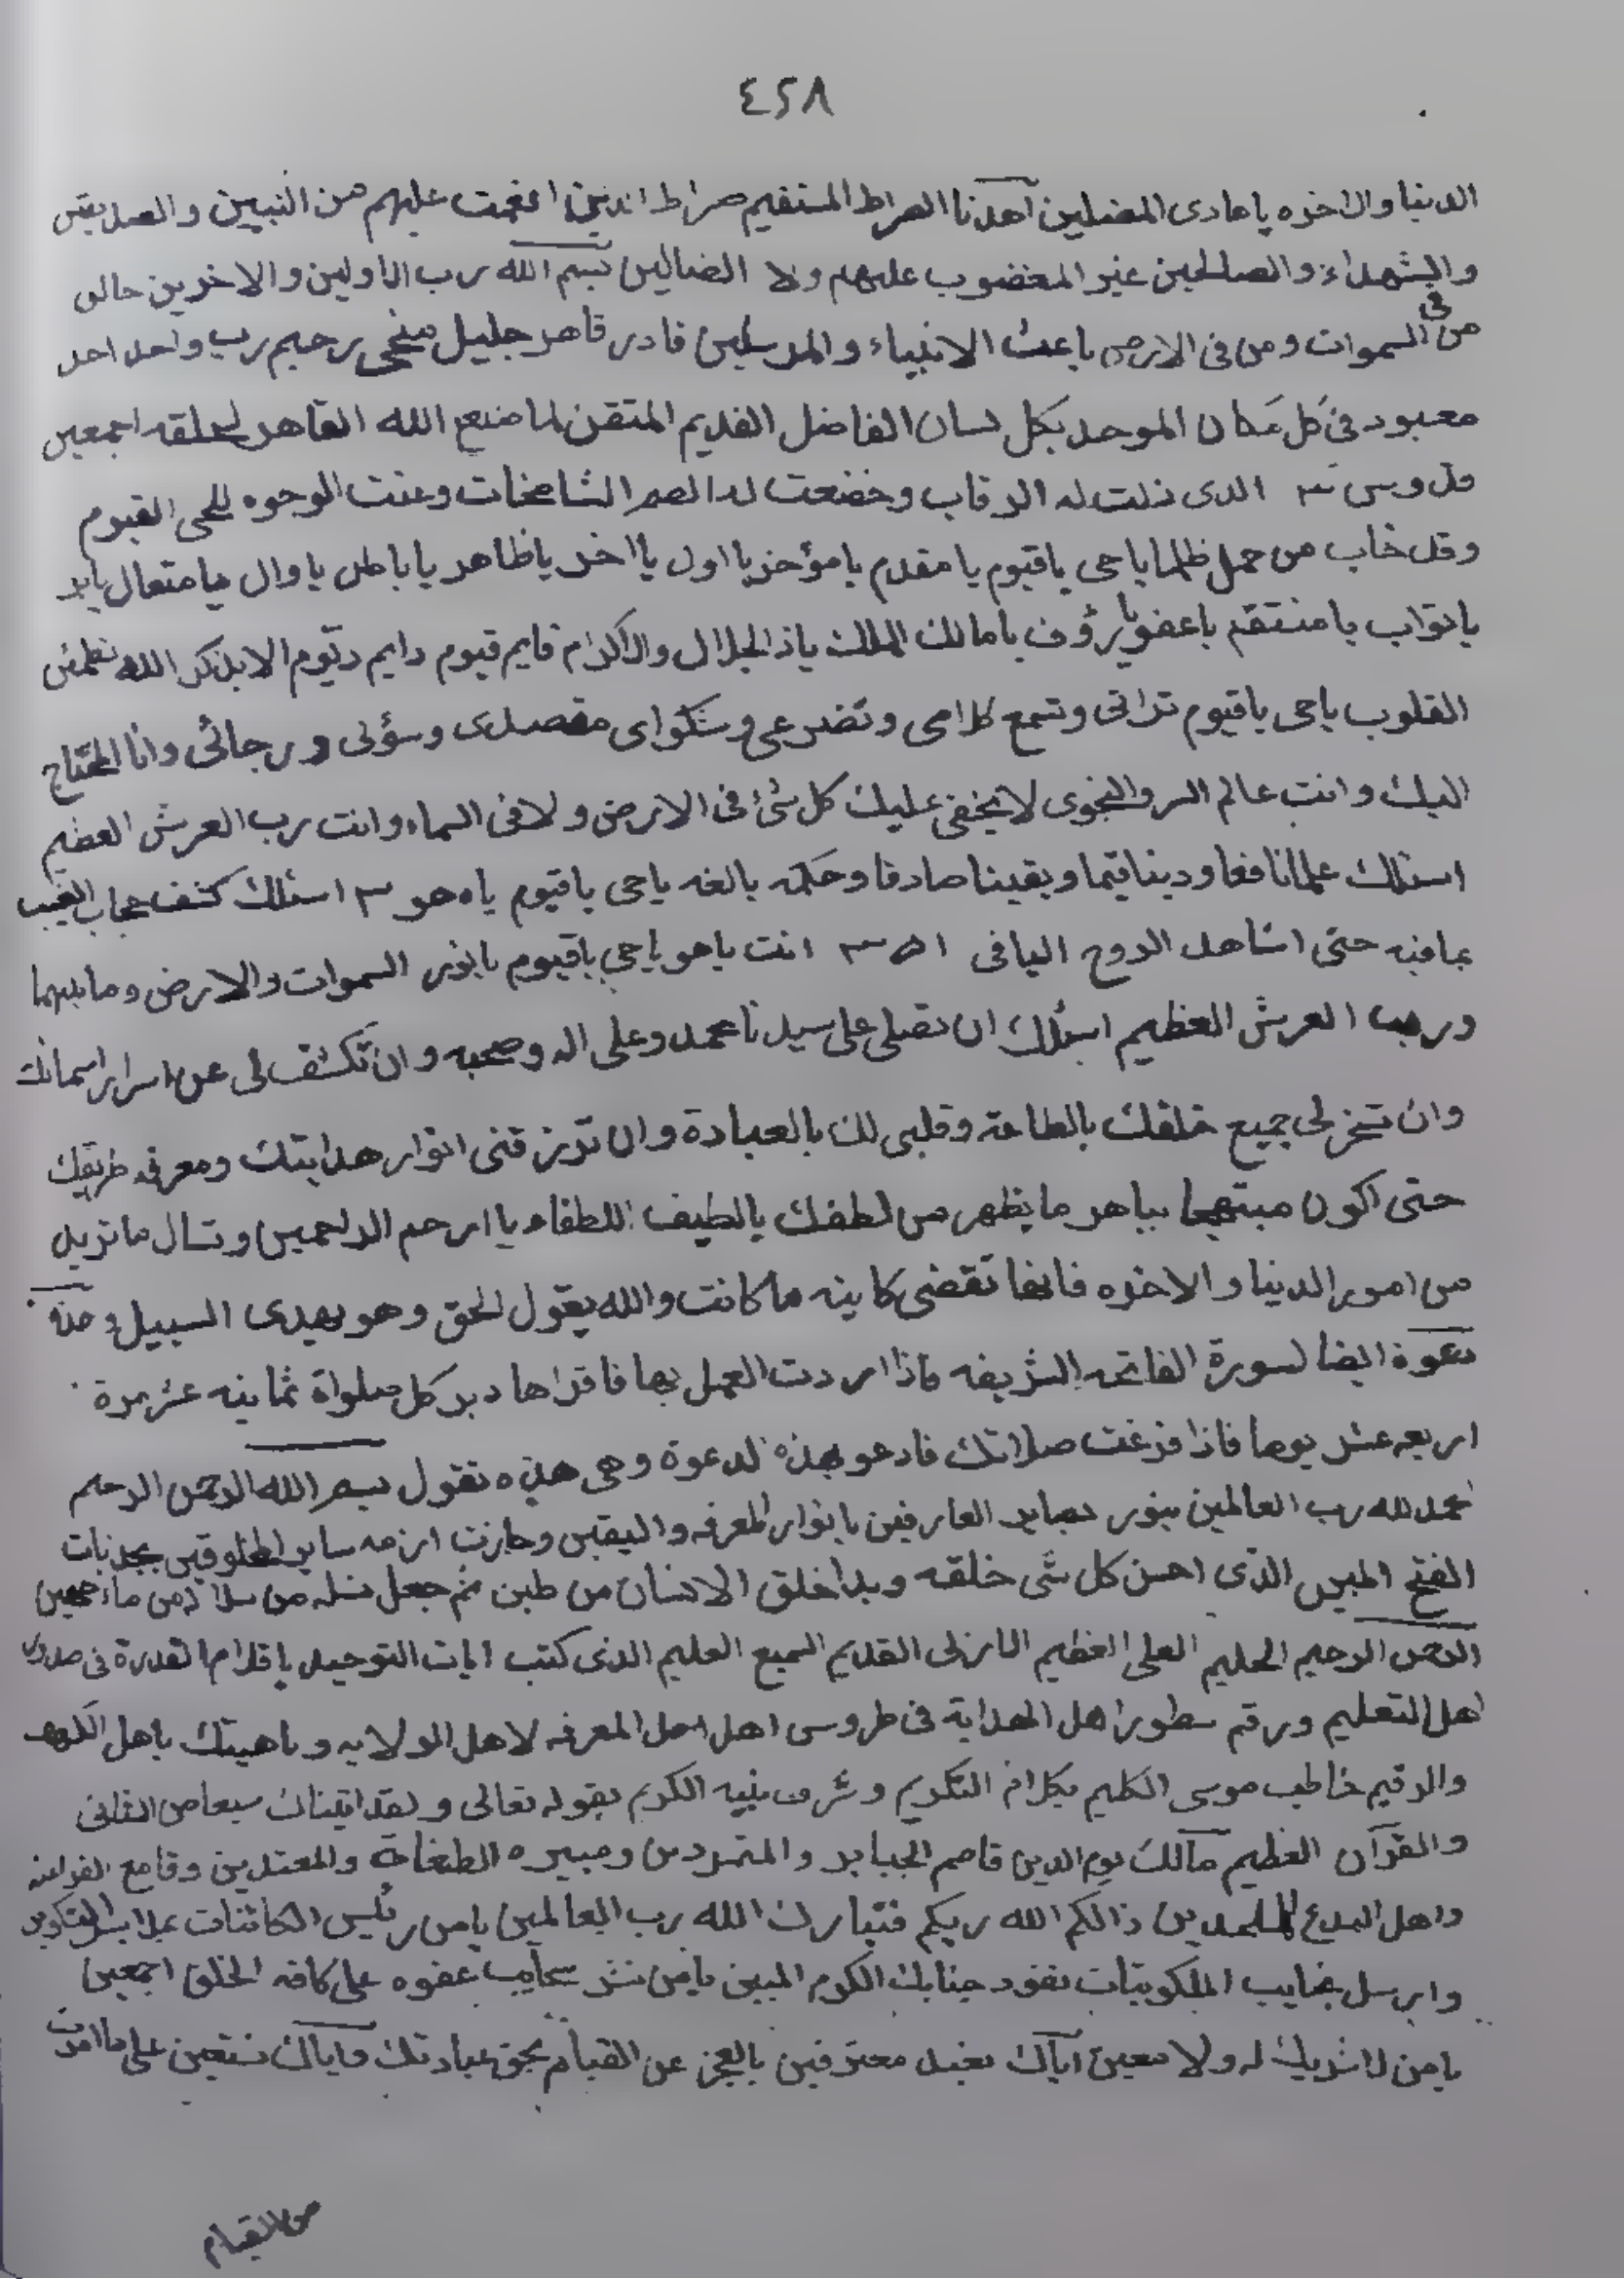 ٤٢٨
الدنيا والاخره يا هادى المضلين اهدنا الصراط المستقيم صراط الذين انعمت عليهم من النبيين والصديقين
والشهداء والصالحين غير المغضوب عليهم ولا الضالين بسم الله رب الاولين والاخرين خالق
من فى السموات ومن فى الارض باعث الانبياء والمرسلين قادر قاهر جليل منجى رحيم رب واحد احد
معبود فى كل مكان الموحد بكل لسان الفاضل القديم المتقن لما صنع الله القاهر لخلقه اجمعين
الذى ذلت له الرقاب وخضعت له الصم الشامخات وعنت الوجوه للحى القيوم
وقد خاب من حمل ظلما ياحى ياقيوم يا مقدم يا مؤخر يا اول يا اخر يا ظاهر يا باطن يا وال يا متعال يابر
يا تواب يا منتقم يا عفو يا رؤف يا مالك الملك ياذ الجلال والاكرام قايم قيوم دايم ديوم الا بذكر الله تطمئن
القلوب ياحى ياقيوم ترانى وتسمع كلامى وتضرعى وشكواى مقصدى وسؤلى ورجائى وانا المحتاج
اليك وانت عالم السر والنجوى لا يخفى عليك كل شئ فى الارض ولا فى السماء وانت رب العرش العضيم
اسئلك علما نافعا ودينا قيما ويقينا صادقا وحكمه بالغه ياحى ياقيوم ياه هو ٣ اسئلك كشف حجاب الغيب
بما فيه حتى اشاهد الروح الباقى ٣ انت يا هو ياحى ياقيوم يا نور السموات والارض وما بينهما
ورب العرش العظيم اسئلك ان تصلى على سيدنا محمد وعلى اله وصحبه وان تكشف لى عن اسرار اسمائك
وان تسخر لى جميع خلقك بالطاعة وقلبى لك بالعبادة وان ترزقنى انوار هدايتك ومعرفه طريقك
حتى اكون مبتهجا بباهر ما يظهر من لطفك يا لطيف اللطفاء يا ارحم الراحمين وتسال ما تريد
من امور الدنيا والاخره فانها تقضى كاينه ما كانت والله يقول الحق وهو يهدى السبيل وهذه
دعوة ايضا لسورة الفاتحه الشريفه فاذا اردت العمل بها فاقراها دبر كل صلواة ثمانيه عشر مرة
اربعه عشر يوما فاذا فرغت صلاتك فادعو بهذه الدعوة وهى هذه تقول بسم الله الرحمن الرحيم
الحمد لله رب العالمين منور بصاير العارفين بانوار المعرفه واليقين وجازت ازمه ساير المخلوقين بجذبات
الفتح المبين الذى احسن كل شى خلقه وبدا خلق الانسان من طين ثم جعل نسله من سلالة من ماء مهين
الرحمن الرحيم الحليم العلى العظيم الازلى القديم السميع العليم الذى كتب ايات التوحيد باقلام القدرة فى صدور
اهل التعليم ورقم سطور اهل الهداية فى طروس اهل اهل المعرفه لاهل الولايه وناهيتك باهل الكهف
والرقيم خاطب موسى الكليم بكلام التكريم وشرف نبيه الكريم بقوله تعالى ولقد اتيناك سبعا من المثانى
والقرآن العظيم مالك يوم الدين قاصم الجبابر والمتمردين ومبيره الطغاة والمعتدين وقامع الفراعنه
واهل البدع الملحدين ذالكم الله ربكم فتبارك الله رب العالمين يا من رئيس الكائنات بملابس التكوين
وارسل نجايب الملكوتيات تقود جنابك الكرم المبين يا من نشر سحايب عفوه على كافه الخلق اجمعين
يا من لا شريك له ولا معين اياك نعبد معترفين بالعجز عن القيام بحق عبادتك واياك نستعين على ما امرت
من القيام